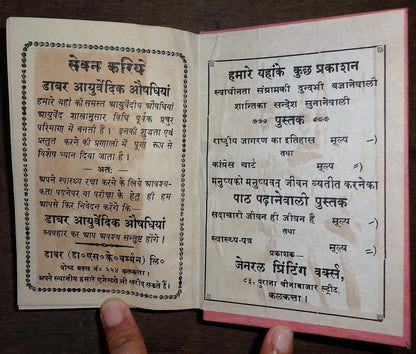 सेवन करिये
डाबर आयुर्वेदिक औषधियां
हमारे यहां की समस्त आयुर्वेदीय औषधियां
आयुर्वेद शास्त्रानुसार विधि पूर्वक प्रचुर
परिमाण में बनती हैं। इनकी शुद्धता एवं
प्रस्तुत करने की प्रणाली में पूर्ण रूप से
विशेष ध्यान दिया जाता है।
— अतः —
अपने स्वास्थ्य रक्षा करने के लिये आवश्य-
कता पड़नेपर या परीक्षा के हेतु ही हम
आपसे फिर निवेदन करेंगे कि—
डाबर आयुर्वेदिक औषधियां
व्यवहार कर आप अवश्य सन्तुष्ट होंगे।
डाबर (डा०एस०के०बर्म्मन) लि०
पोष्ट बक्स नं० ५५४ कलकत्ता।
अपने स्थानीय हमारे एजेण्टसे भी खरीद सकते हैं।
हमारे यहांके कुछ प्रकाशन
स्वाधीनता संग्रामकी दुन्दभी बजानेवाली
शान्तिका सन्देश सुनानेवाली
पुस्तक
राष्ट्रीय जागरण का इतिहास मूल्य -)
तथा
कांग्रेस चार्ट मूल्य =)
मनुष्यको मनुष्यवत् जीवन व्यतीत करनेका
पाठ पढ़ानेवाली पुस्तक
सदाचारी जीवन ही जीवन है मूल्य -)
तथा
स्वास्थ्य-पत्र मूल्य =)
प्रकाशक—
जेनरल प्रिंटिंग वर्क्स,
८३, पुराना चीनाबाजार स्ट्रीट,
कलकत्ता।